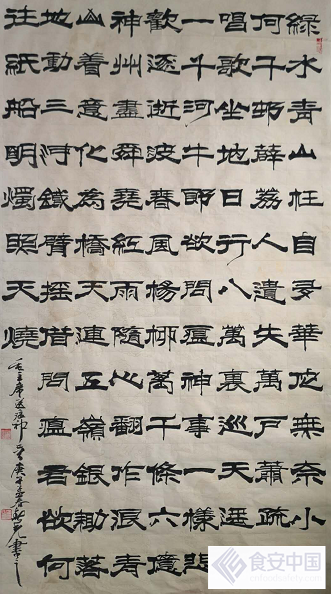 綠水青山枉自多華佗無奈小
何千邨薜荔人遺失萬戶蕭疏
唱歌坐地日行八萬裏巡天遙
一千河牛郎欲問瘟神事一樣悲
歡逐逝波春風楊柳萬千條六億
神州盡舜堯紅雨隨心翻作浪青
山着意化為橋天連五嶺銀鋤落
地動三河鐵臂搖借問瘟君欲何
往紙船明燭照天燒
毛主席送瘟神 庚午春 書
食安中国